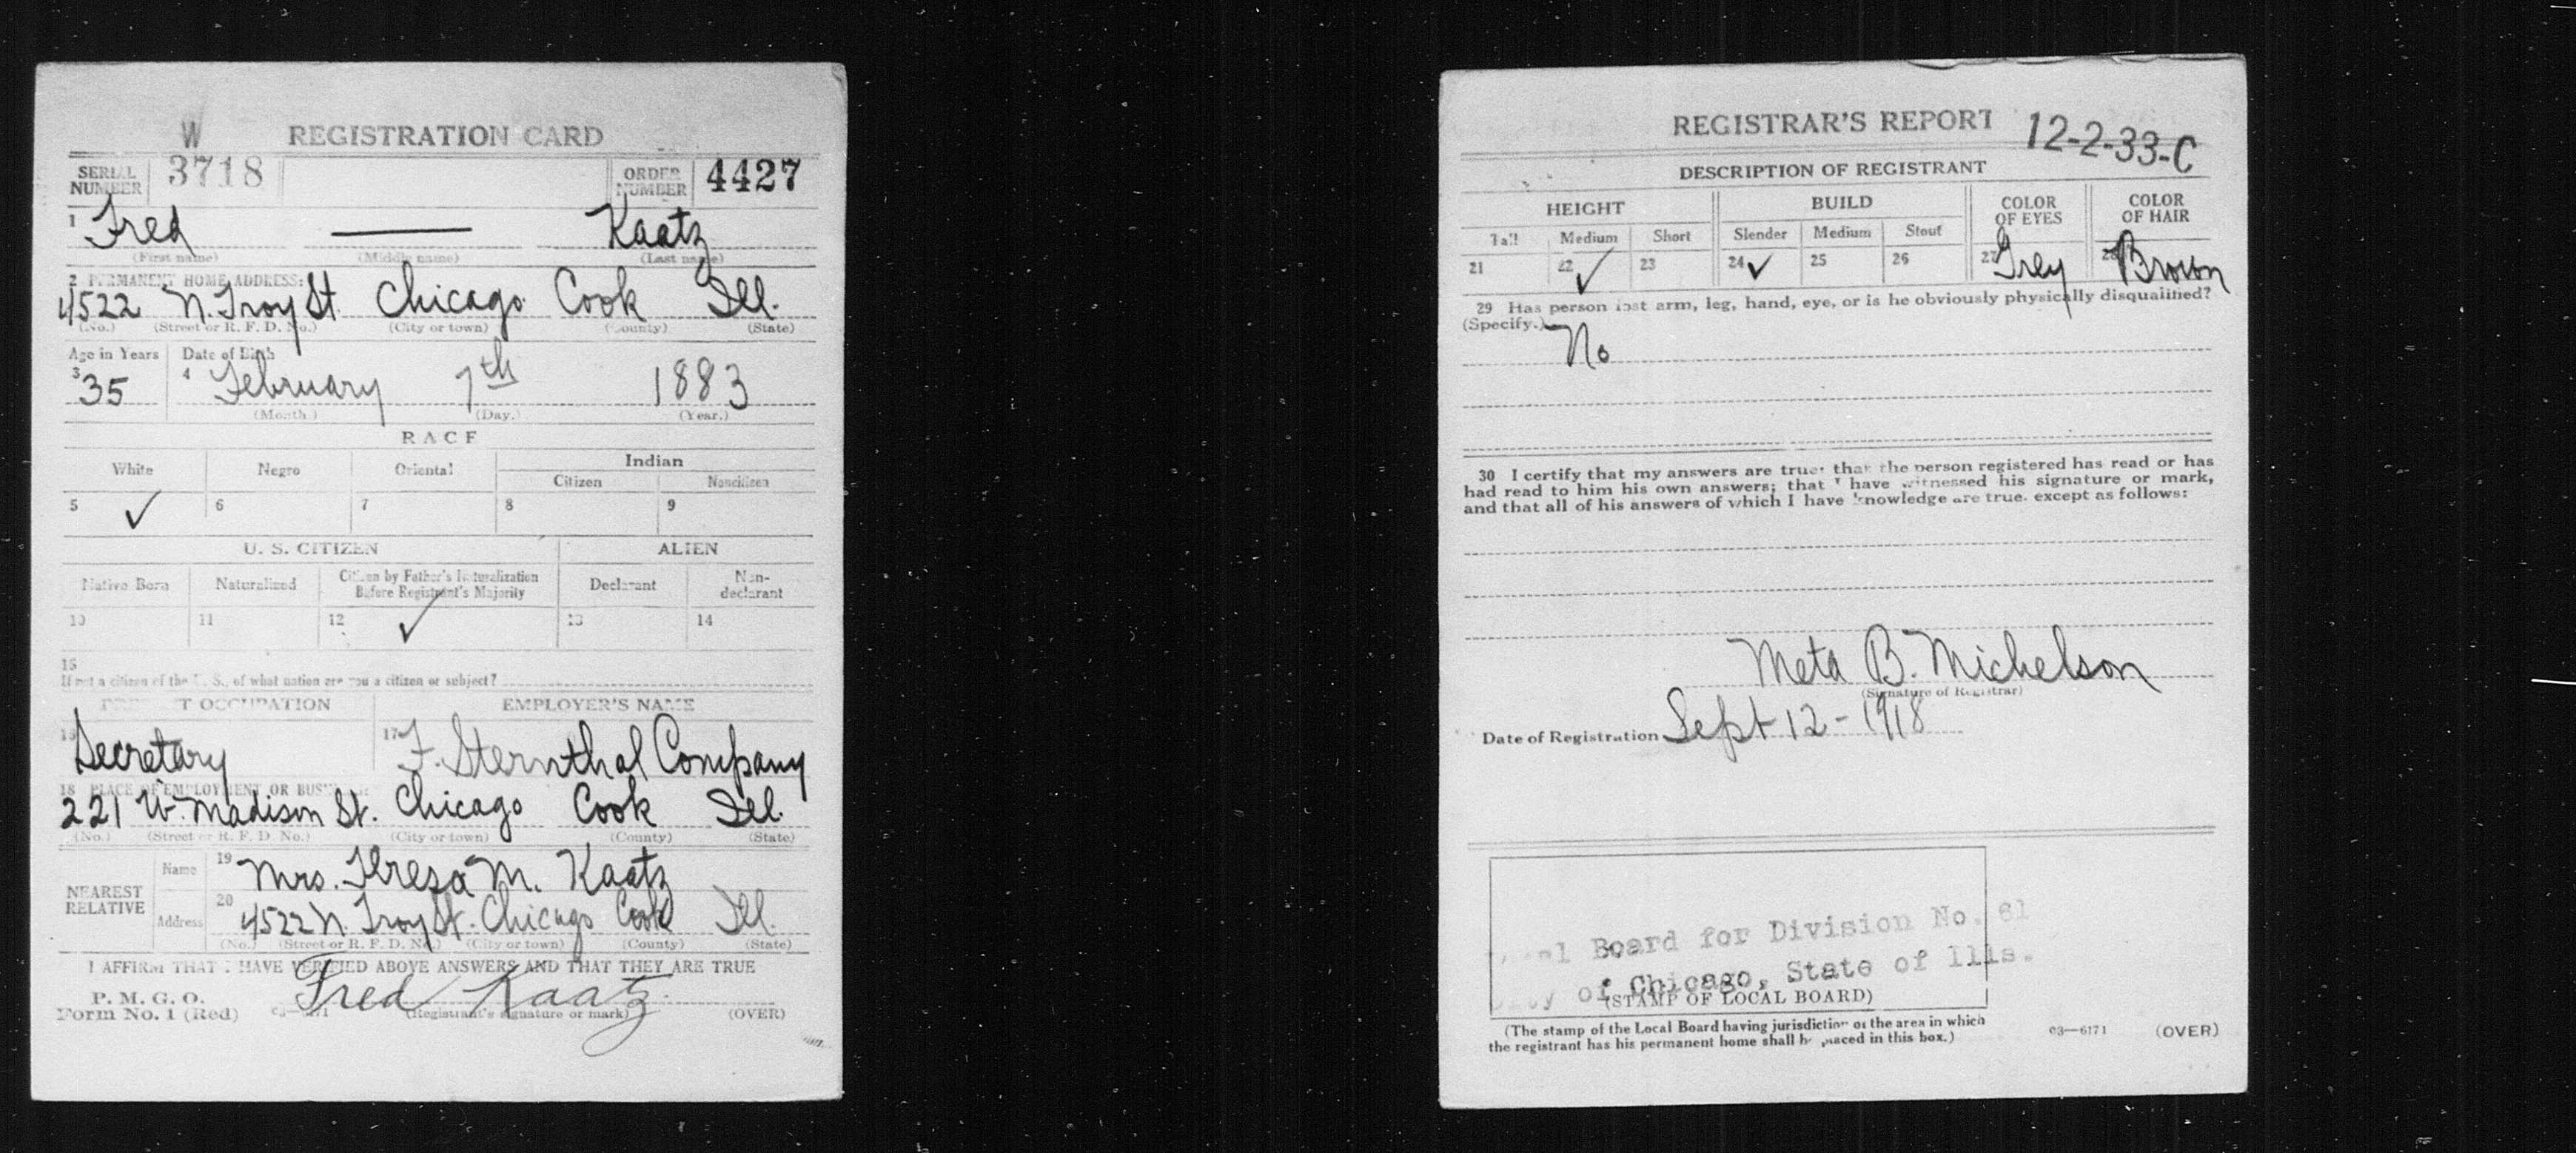 W REGISTRATION CARD
SERIAL NUMBER 3718 ORDER NUMBER 4427
1 Fred —— Kaatz
(First name) (Middle name) (Last name)
2 PERMANENT HOME ADDRESS:
4522 N. Troy St. Chicago Cook Ill.
(No.) (Street or R. F. D. No.) (City or town) (County) (State)
Age in Years Date of Birth
3 35 4 February 7th 1883
(Month.) (Day.) (Year.)
RACE
White Negro Oriental Indian
Citizen Noncitizen
5 ✓ 6 7 8 9
U. S. CITIZEN ALIEN
Native Born Naturalized Citizen by Father's Naturalization Before Registrant's Majority Declarant Non-declarant
10 11 12 ✓ 13 14
15
If not a citizen of the U. S., of what nation are you a citizen or subject?
PRESENT OCCUPATION EMPLOYER'S NAME
16 Secretary 17 F. Sternthal Company
18 PLACE OF EMPLOYMENT OR BUSINESS:
221 W. Madison St. Chicago Cook Ill.
(No.) (Street or R. F. D. No.) (City or town) (County) (State)
NEAREST RELATIVE
Name 19 Mrs. Teresa M. Kaatz
Address 20 4522 N. Troy St. Chicago Cook Ill.
(No.) (Street or R. F. D. No.) (City or town) (County) (State)
I AFFIRM THAT I HAVE VERIFIED ABOVE ANSWERS AND THAT THEY ARE TRUE
P. M. G. O.
Form No. 1 (Red) 03—6171 Fred Kaatz
(Registrant's signature or mark) (OVER)
REGISTRAR'S REPORT 12-2-33-C
DESCRIPTION OF REGISTRANT
HEIGHT BUILD COLOR OF EYES COLOR OF HAIR
Tall Medium Short Slender Medium Stout
21 22 ✓ 23 24 ✓ 25 26 27 Grey 28 Brown
29 Has person lost arm, leg, hand, eye, or is he obviously physically disqualified?
(Specify.) No
30 I certify that my answers are true; that the person registered has read or has
had read to him his own answers; that I have witnessed his signature or mark,
and that all of his answers of which I have knowledge are true, except as follows:
Meta B. Michelson
(Signature of Registrar)
Date of Registration Sept 12 - 1918
Local Board for Division No. 61
City of Chicago, State of Ills.
(STAMP OF LOCAL BOARD)
(The stamp of the Local Board having jurisdiction of the area in which
the registrant has his permanent home shall be placed in this box.)
03—6171 (OVER)